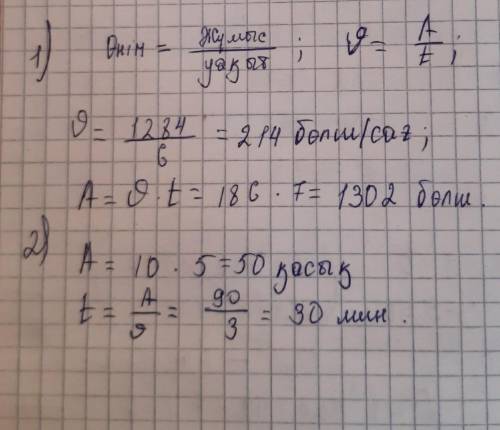 1) Өнім = Жұмыс/уақыт ; ϑ = A/t ;
ϑ = 1284/6 = 214 бөлш/сағ ;
A = ϑ · t = 186 · 7 = 1302 бөлш .
2) A = 10 · 5 = 50 қасық
t = A/ϑ = 90/3 = 30 мин .